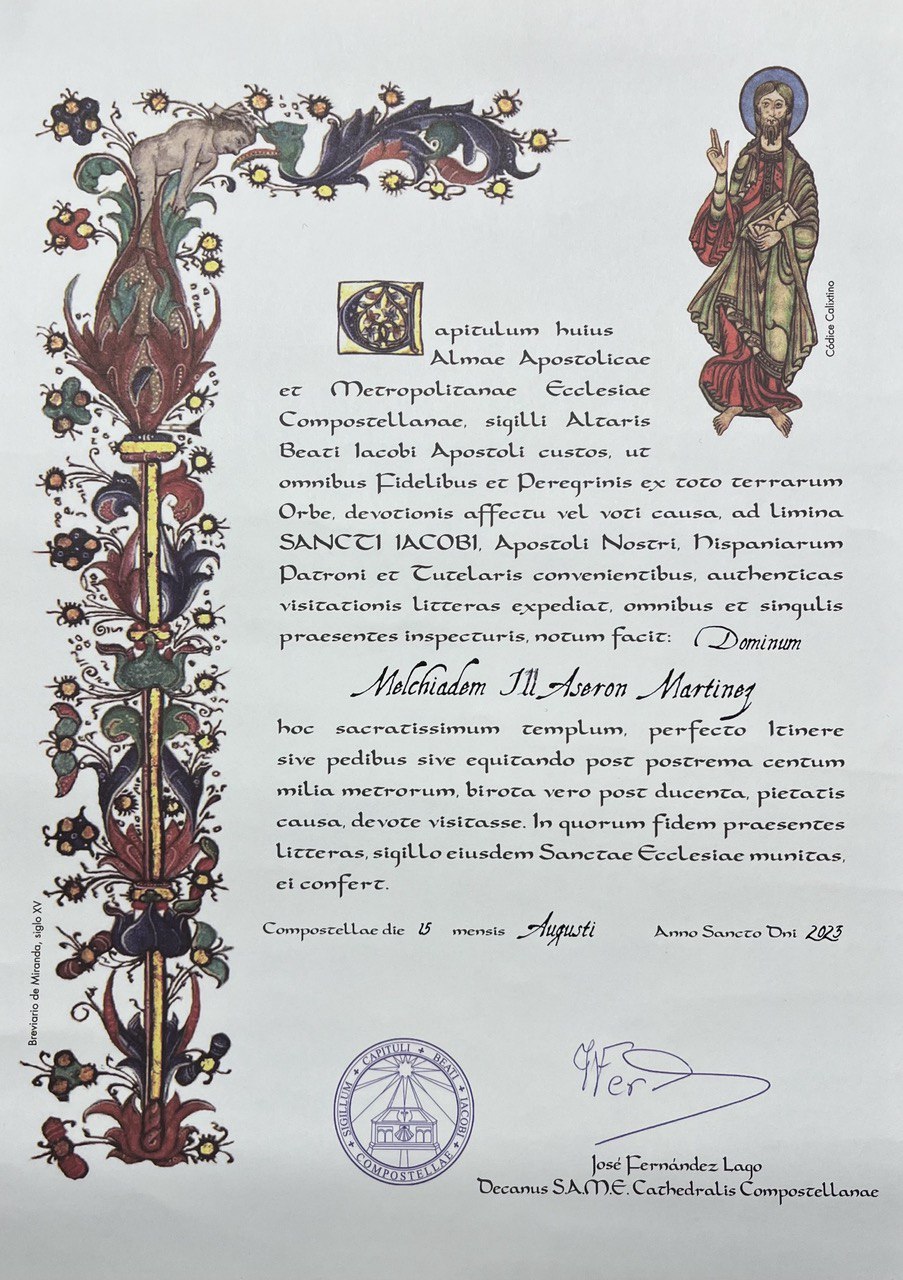 Códice Calixtino
Capitulum huius
Almae Apostolicae
et Metropolitanae Ecclesiae
Compostellanae, sigilli Altaris
Beati Iacobi Apostoli custos, ut
omnibus Fidelibus et Peregrinis ex toto terrarum
Orbe, devotionis affectu vel voti causa, ad limina
SANCTI IACOBI, Apostoli Nostri, Hispaniarum
Patroni et Tutelaris convenientibus, authenticas
visitationis litteras expediat, omnibus et singulis
praesentes inspecturis, notum facit: Dominum
Melchiadem III Aseron Martinez
hoc sacratissimum templum, perfecto Itinere
sive pedibus sive equitando post postrema centum
milia metrorum, birota vero post ducenta, pietatis
causa, devote visitasse. In quorum fidem praesentes
litteras, sigillo eiusdem Sanctae Ecclesiae munitas,
ei confert.
Compostellae die 15 mensis Augusti Anno Sancto Dni 2023
Breviario de Miranda, siglo XV
SIGILLUM + CAPITULI + BEATI + IACOBI + COMPOSTELLAE +
José Fernández Lago
Decanus S.A.M.E. Cathedralis Compostellanae